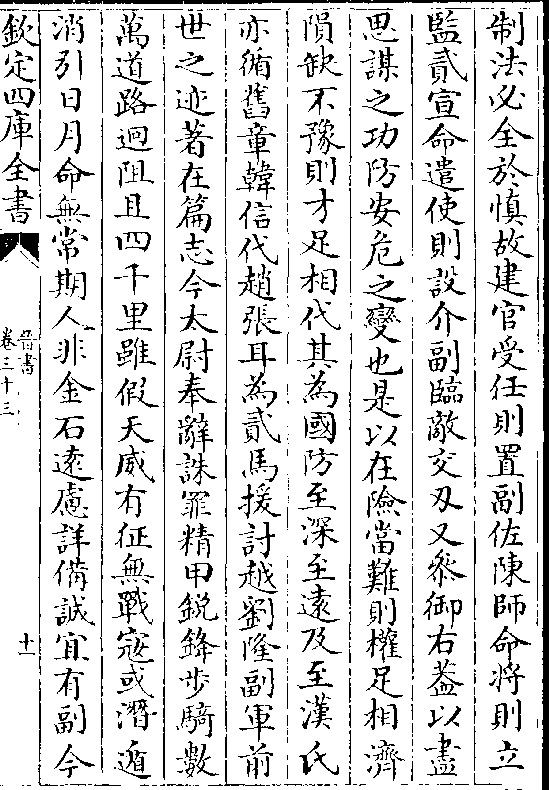 制法必全於慎故建官受任則置副佐陳師命將則立
監貳宣命遣使則設介副臨敵交刃又參御右葢以盡
思謀之功防安危之變也是以在險當難則權足相濟
隕缺不豫則才足相代其為國防至深至遠及至漢氏
亦循舊章韓信代趙張耳為貳馬援討越劉隆副軍前
世之迹著在篇志今太尉奉辭誅罪精甲銳鋒步騎數
萬道路迥阻且四千里雖假天威有征無戰寇或潛遁
消引日月命無常期人非金石遠慮詳備誠宜有副今
欽定四庫全書
晉書
卷三十三
十一